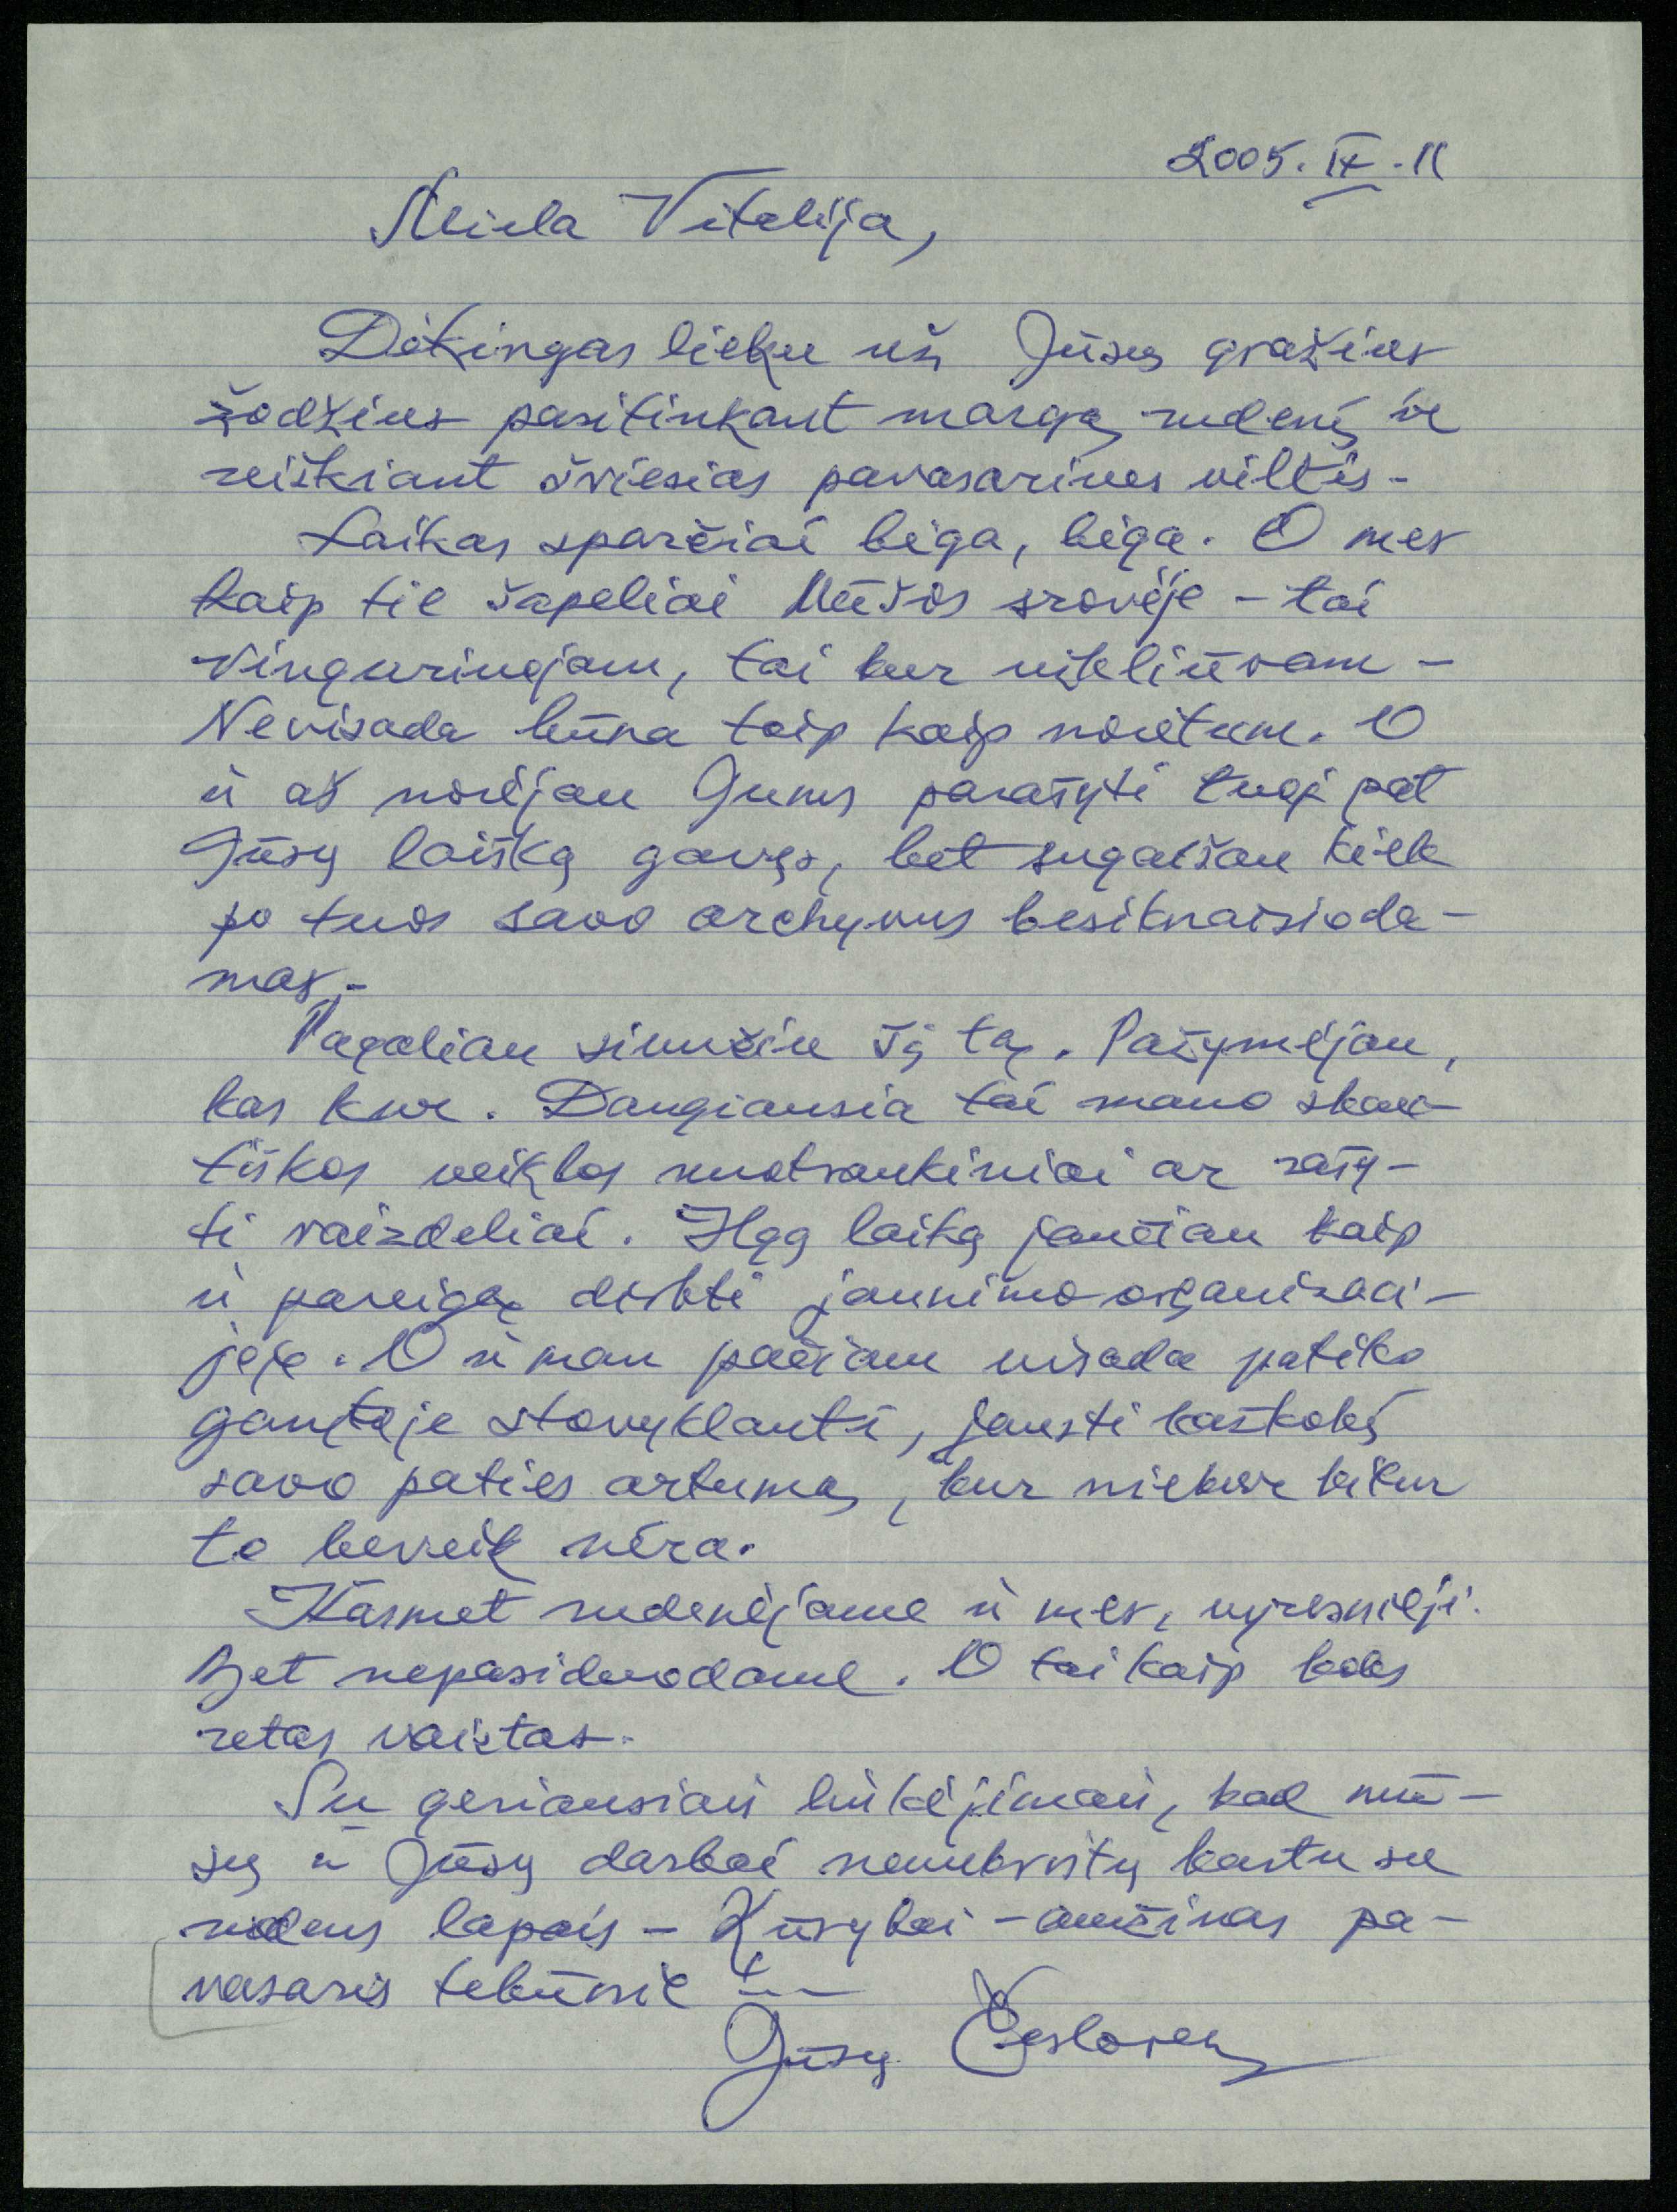 2005.IX.11
Miela Vitalija,
Dėkingas lieku už Jūsų gražius
žodžius pasitinkant margą rudenį ir
reiškiant šviesias pavasarines viltis –
Laikas sparčiai bėga, bėga. O mes
kaip tie šapeliai Mūšos srovėje – tai
vinguriuojam, tai kur užkliūvam –
Nevisada būna taip kaip norėtum. O
ir aš norėjau Jums parašyti tuoj pat
Jūsų laišką gavęs, bet sugaišau kiek
po tuos savo archyvus besiknaisioda-
mas. –
Pagaliau siunčiu šį tą. Pažymėjau,
kas kur. Daugiausia tai mano skau-
tiškos veiklos nuotraukiniai ar rašy-
ti vaizdeliai. Ilgą laiką jaučiau kaip
ir pareigą dirbti jaunimo organizaci-
joje. O ir man pačiam visada patiko
gamtoje stovyklauti, jausti kažkokį
savo paties artumą, kur niekur kitur
to beveik nėra.
Kasmet rudenėjame ir mes, vyresnieji.
Bet nepasiduodame. O tai kaip koks
retas vaistas.
Su geriausiais linkėjimais, kad mū-
sų ir Jūsų darbai nenukristų kartu su
rudens lapais – Kūrybai – amžinas pa-
vasaris tebūnie! —
Jūsų Česlovas